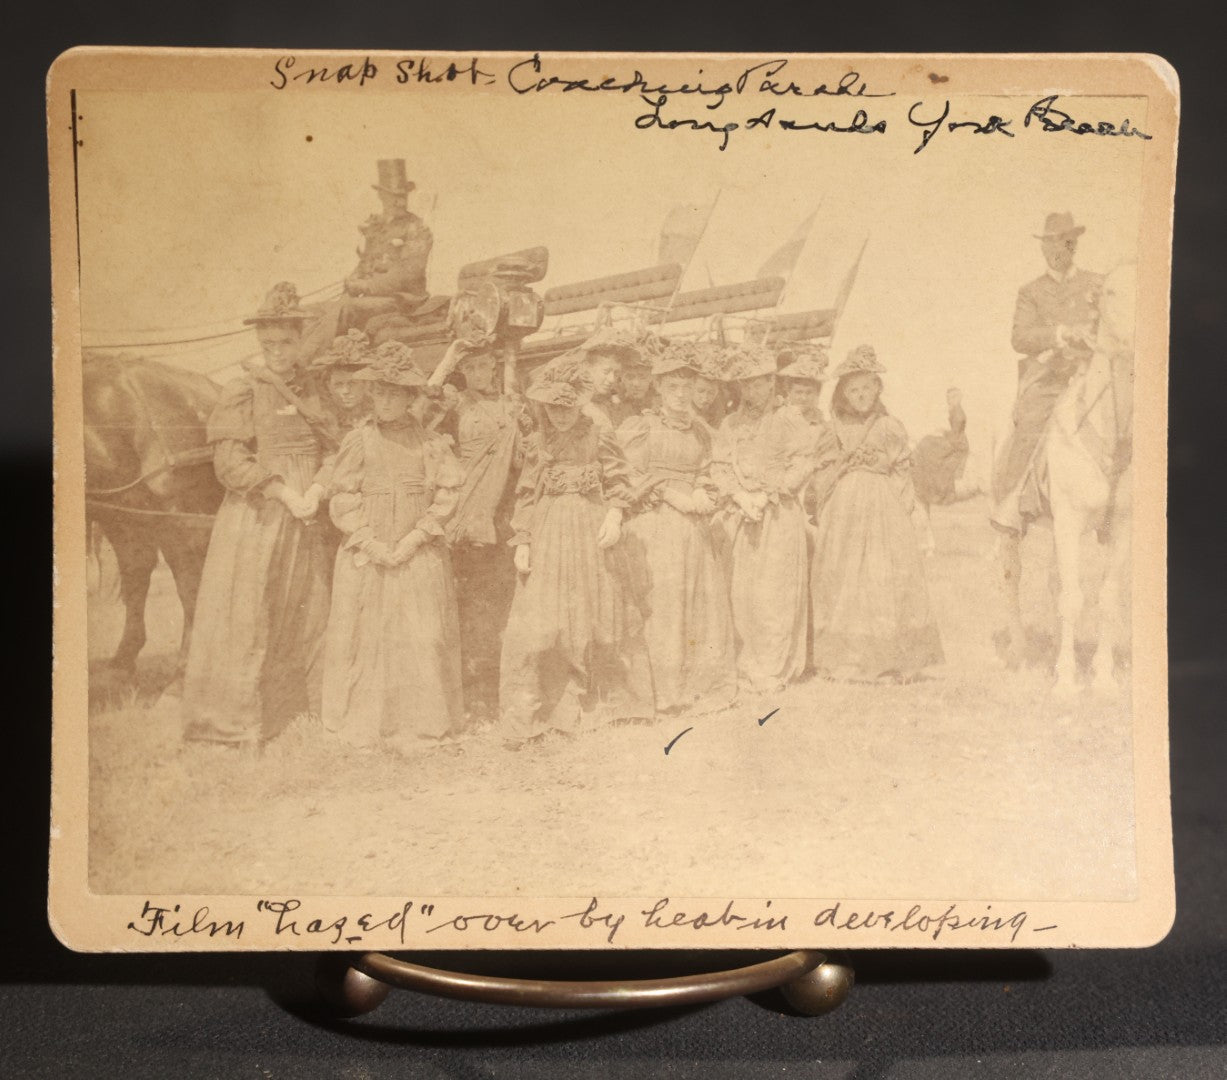 Snap Shot - Coaching Parade
Long Sands York Beach
Film "hazed" over by heat in developing -